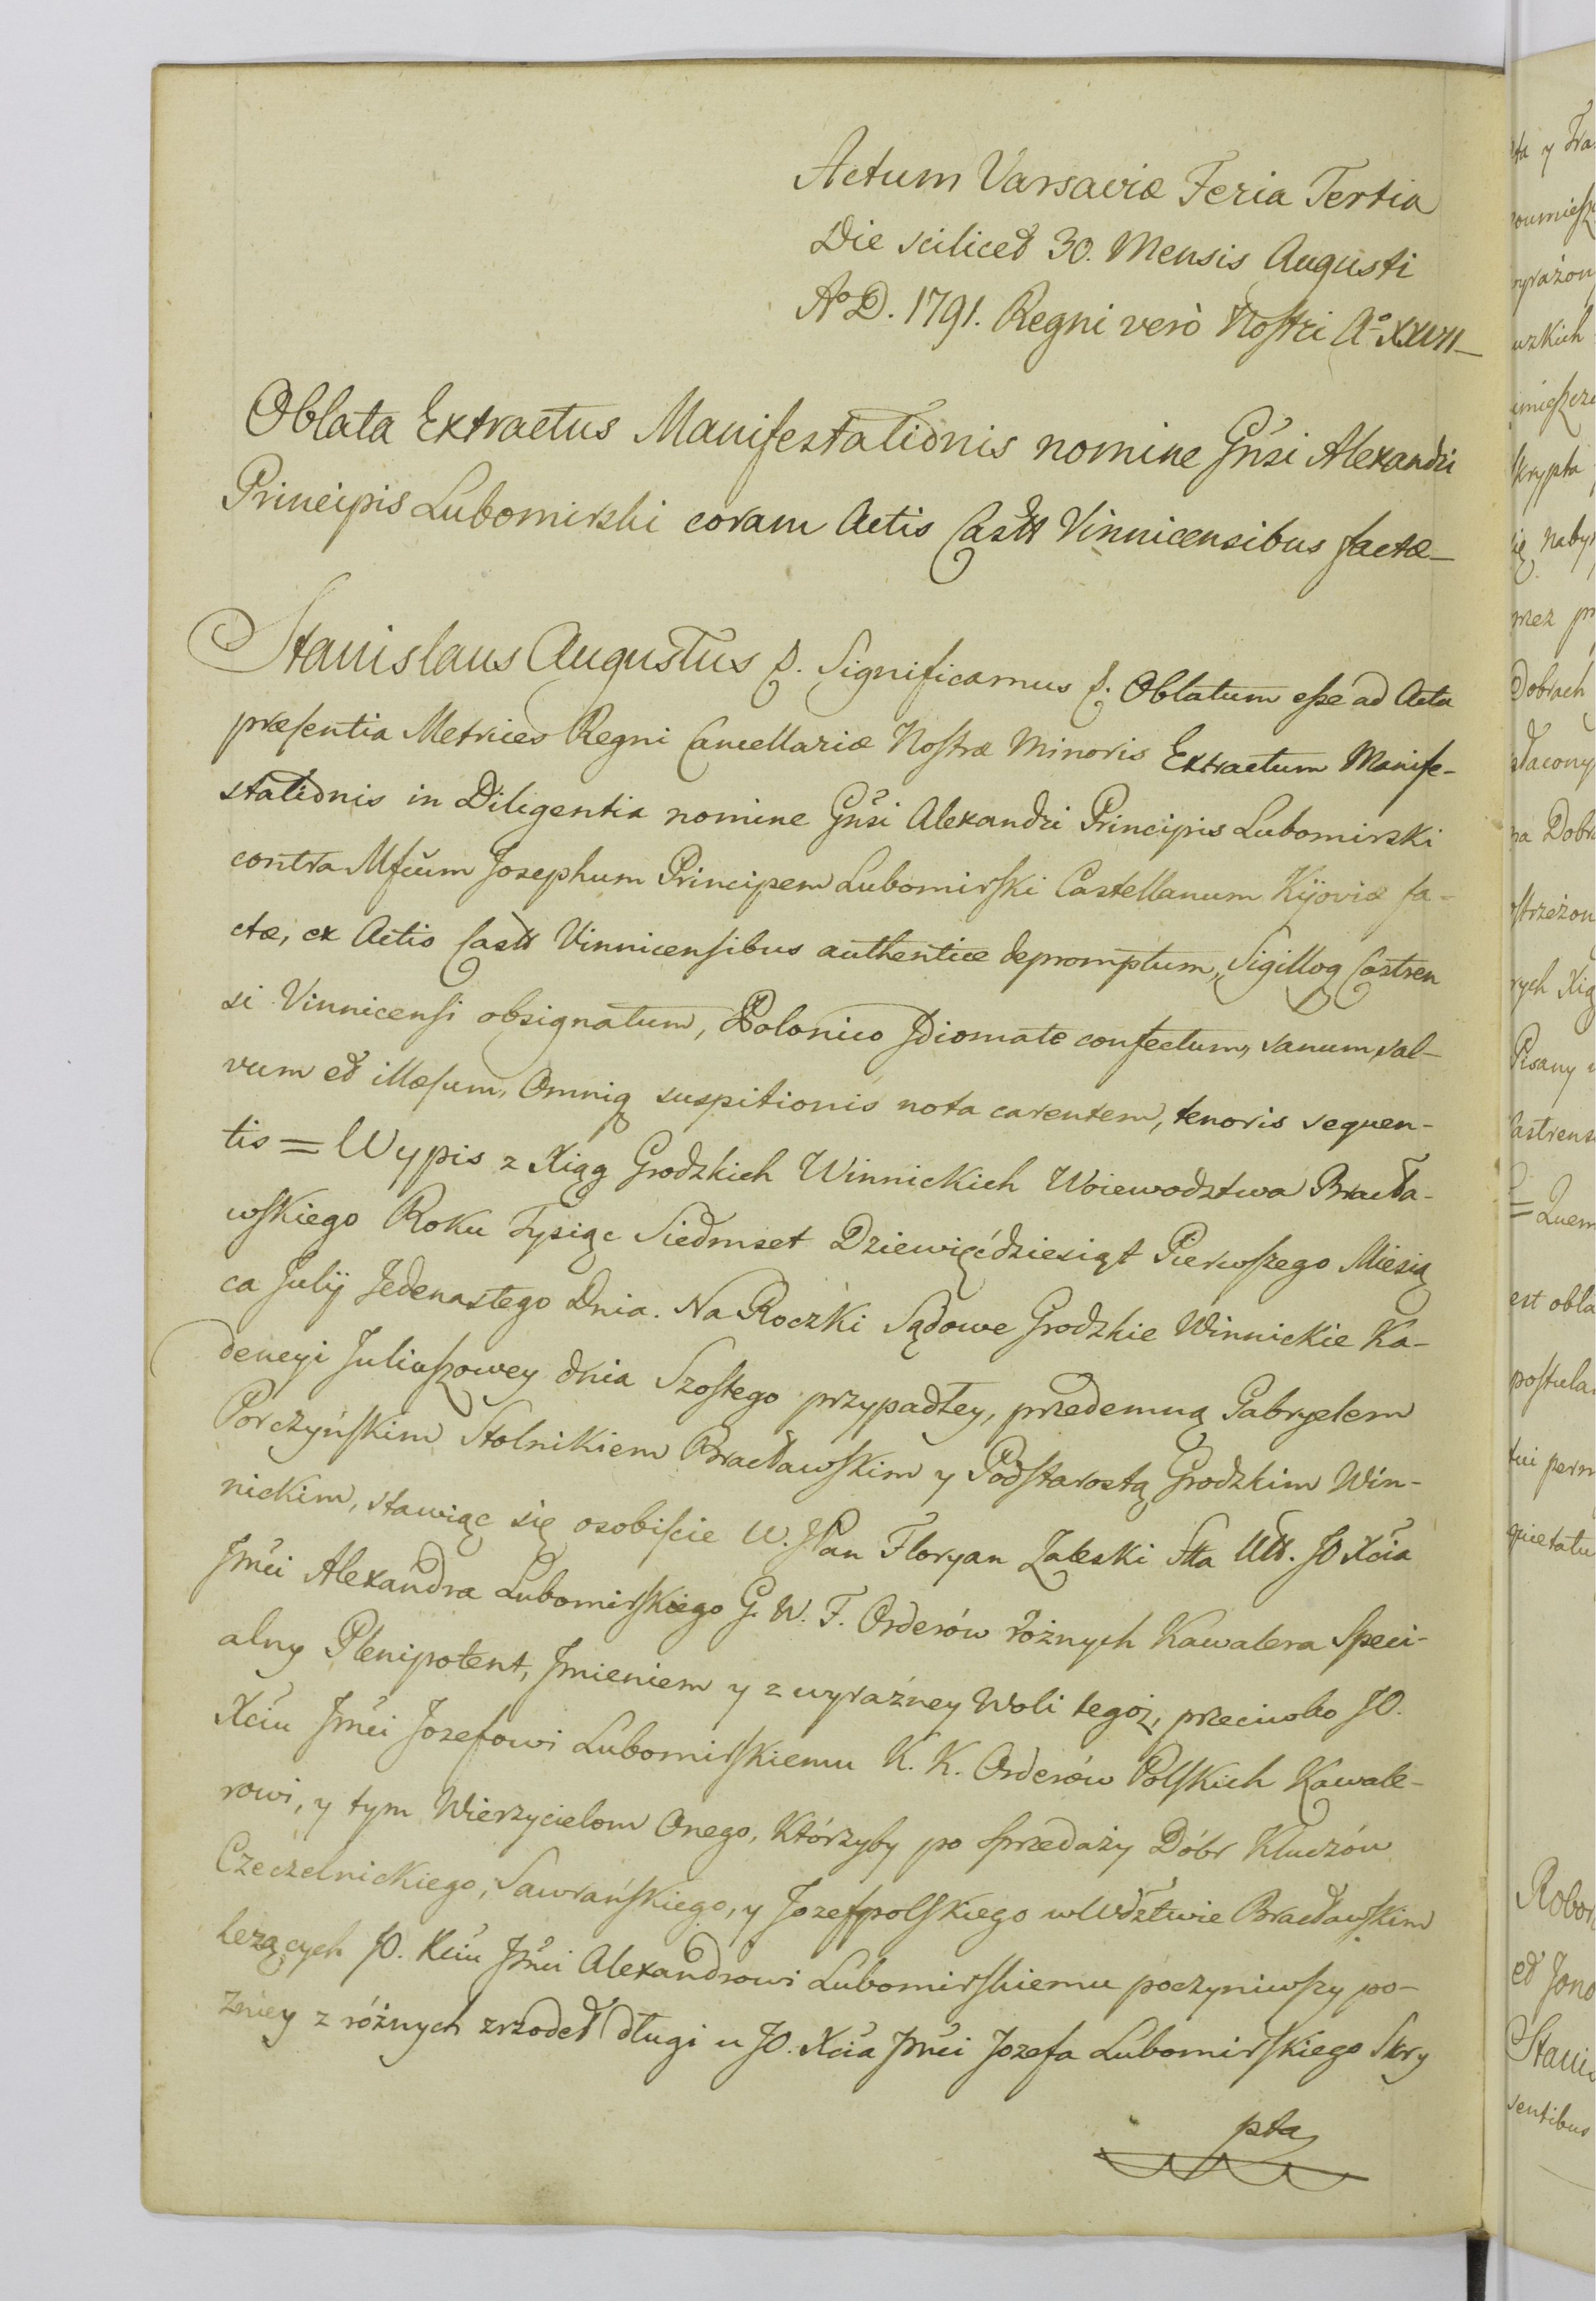 Actum Varsaviæ Feria Tertia
Die scilicet 30. Mensis Augusti
Aº D. 1791. Regni verò Nostri Aº XXVII
Oblata Extractus Manifestationis nomine Gñsi Alexandri
Principis Lubomirski coram Actis Castt Vinnicensibus factæ
Stanislaus Augustus &. Significamus &. Oblatum esse ad Acta
præsentia Metrices Regni Cancellariæ Nostræ Minoris Extractum Manife-
stationis in Diligentia nomine Gñsi Alexandri Principis Lubomirski
contra Mfcum Josephum Principem Lubomirski Castellanum Kijoviæ fa-
ctæ, ex Actis Castt Vinnicensibus authentice depromptum, Sigilloq Castren
si Vinnicensi obsignatum, Polonico Idiomate confectum, sanum, sal-
vum et illæsum, Omniq suspitionis nota carentem, tenoris sequen-
tis = Wypis z Xiąg Grodzkich Winnickich Woiewodztwa Bracła-
wskiego Roku Tysiąc Siedmset Dziewięćdziesiąt Pierwszego Miesią
ca Julij Jedenastego Dnia. Na Roczki Sądowe Grodzkie Winnickie Ka-
dencyi Juliuszowey dnia Szostego przypadłey, przedemną Gabryelem
Porczyńskim Stolnikiem Bracławskim y Podstarostą Grodzkim Win-
nickim, stawiąc się osobiście W. JPan Floryan Zaleski Stta Utt. JO Xcia
Jmci Alexandra Lubomirskiego G. W. F. Orderów różnych Kawalera Speci-
alny Plenipotent, Imieniem y z wyraźney Woli tegoż, przeciwko JO.
Xciu Jmci Jozefowi Lubomirskiemu K. K. Orderów Polskich Kawale-
rowi, y tym Wierzycielom Onego, Którzyby po sprzedaży Dóbr Kluczów
Czeczelnickiego, Sawrańskiego, y Jozefpolskiego w Wdztwie Bracławskim
leżących JO. Xciu Jmci Alexandrowi Lubomirskiemu poczyniwszy po-
zniey z różnych zrzodeł długi u JO. Xcia Jmci Jozefa Lubomirskiego Skry
pta